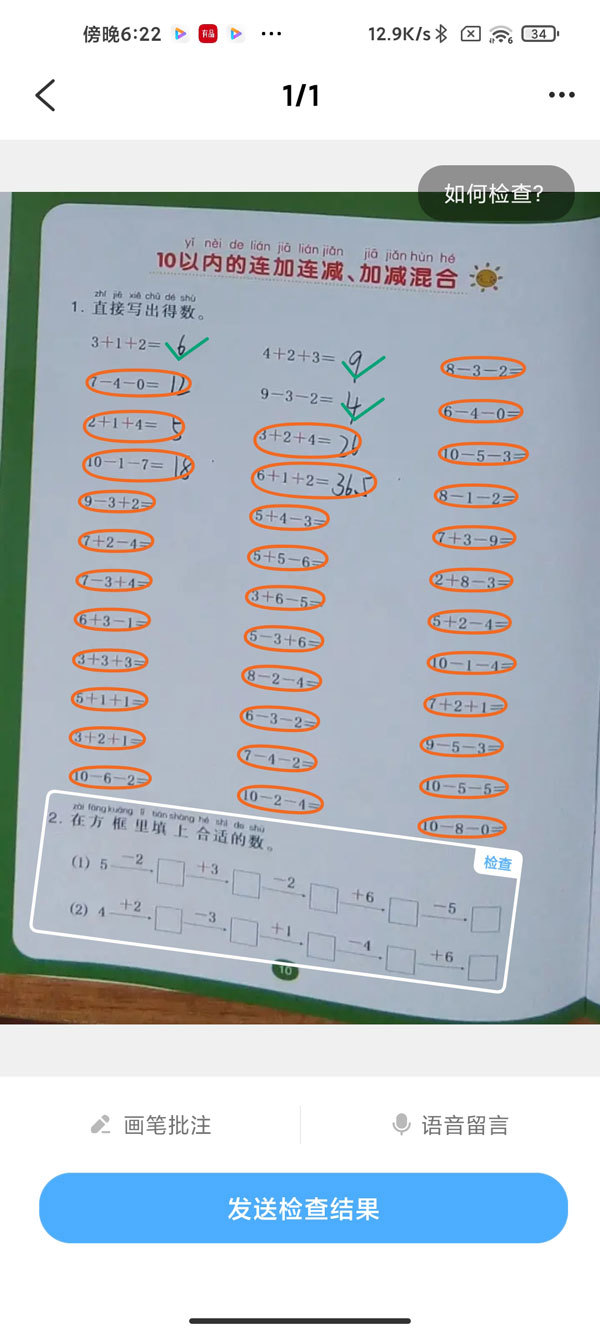 傍晚6:22
有品
12.9K/s
6
34
1/1
如何检查?
yǐ nèi de lián jiā lián jiǎn jiā jiǎn hùn hé
10以内的连加连减、加减混合
zhí jiē xiě chū dé shù
1. 直接写出得数。
3+1+2= 6
4+2+3= 9
8-3-2=
7-4-0= 12
9-3-2= 4
6-4-0=
2+1+4= 5
3+2+4= 26
10-5-3=
10-1-7= 18
6+1+2= 36.5
8-1-2=
9-3+2=
5+4-3=
7+3-9=
7+2-4=
5+5-6=
2+8-3=
7-3+4=
3+6-5=
5+2-4=
6+3-1=
5-3+6=
10-1-4=
3+3+3=
8-2-4=
7+2+1=
5+1+1=
6-3-2=
9-5-3=
3+2+1=
7-4-2=
10-5-5=
10-6-2=
10-2-4=
10-8-0=
zài fāng kuàng lǐ tián shàng hé shì de shù
2. 在方框里填上合适的数。
检查
(1) 5 -2 +3 -2 +6 -5
(2) 4 +2 -3 +1 -4 +6
10
画笔批注
语音留言
发送检查结果